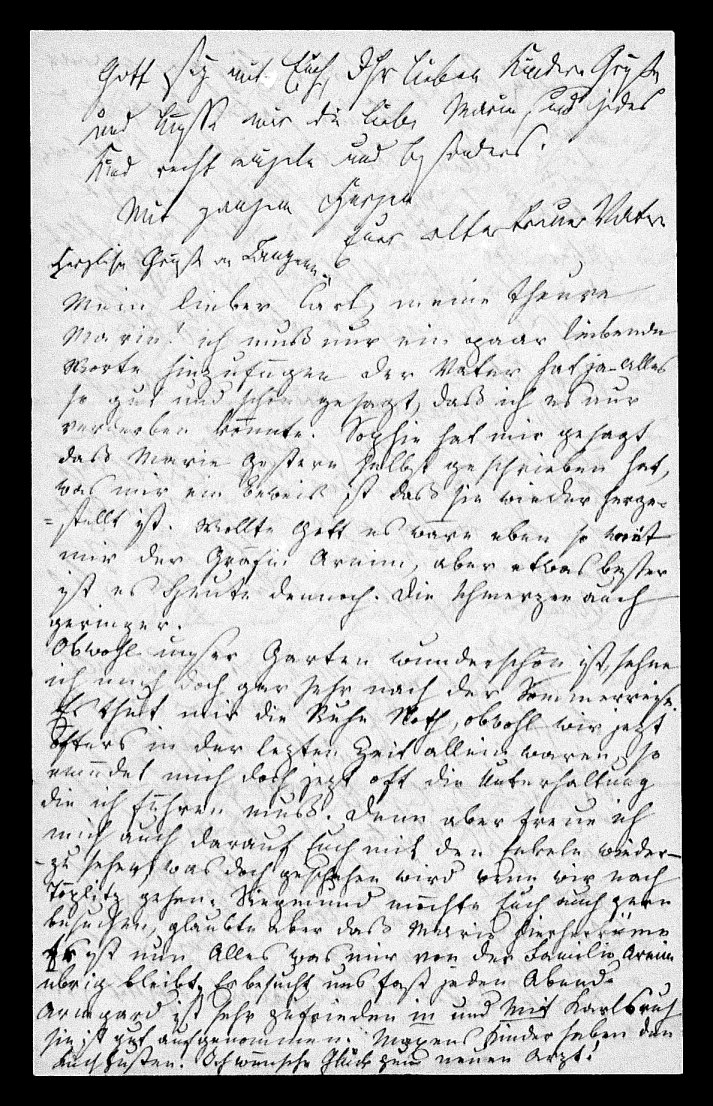 Gott sey mit Euch, Ihr lieben Kinder Grüße
und küsse mir die liebe Marie und jedes
Kind recht einzeln und besonders.
Mit ganzem Herzen
Euer alter treuer Vater
Herzliche Grüße an
Mein lieber Carl, meine theure
Marie! ich muß nur ein paar liebende
Worte hinzufügen der Vater hat ja Alles
so gut und schön gesagt, daß ich es nur
verderben könnte. Sophie hat mir gesagt
daß Marie gestern selbst geschrieben hat,
was mir ein Beweis ist daß sie wieder herge-
=stellt ist. Wollte Gott es wäre eben so weit
mit der Gräfin Arnim, aber etwas besser
ist es heute dennoch. Die Schmerzen auch
geringer.
Obwohl unser Garten wunderschön ist, sehne
ich mich doch gar sehr nach der Sommerreise.
Es thut mir die Ruhe Noth, obwohl wir jetzt
öfters in der letzten Zeit allein waren, so
ermüdet mich doch jetzt oft die Unterhaltung
die ich führen muß. Dann aber freue ich
mich auch darauf Euch mit den Enkeln wieder-
zu sehen, was doch geschehen wird wenn wir nach
Töplitz gehen. Siegmund möchte Euch auch gern
besuchen, glaubte aber daß Marie
Er ist nun Alles was mir von der Familie Arnim
übrig bleibt. Er besucht uns fast jeden Abend.
Armgard ist sehr zufrieden in und mit Karlsruh
sie ist gut aufgenommen. Maxens Kinder haben den
Keuchhusten. Ich wünsche Glück zum neuen Arzt!